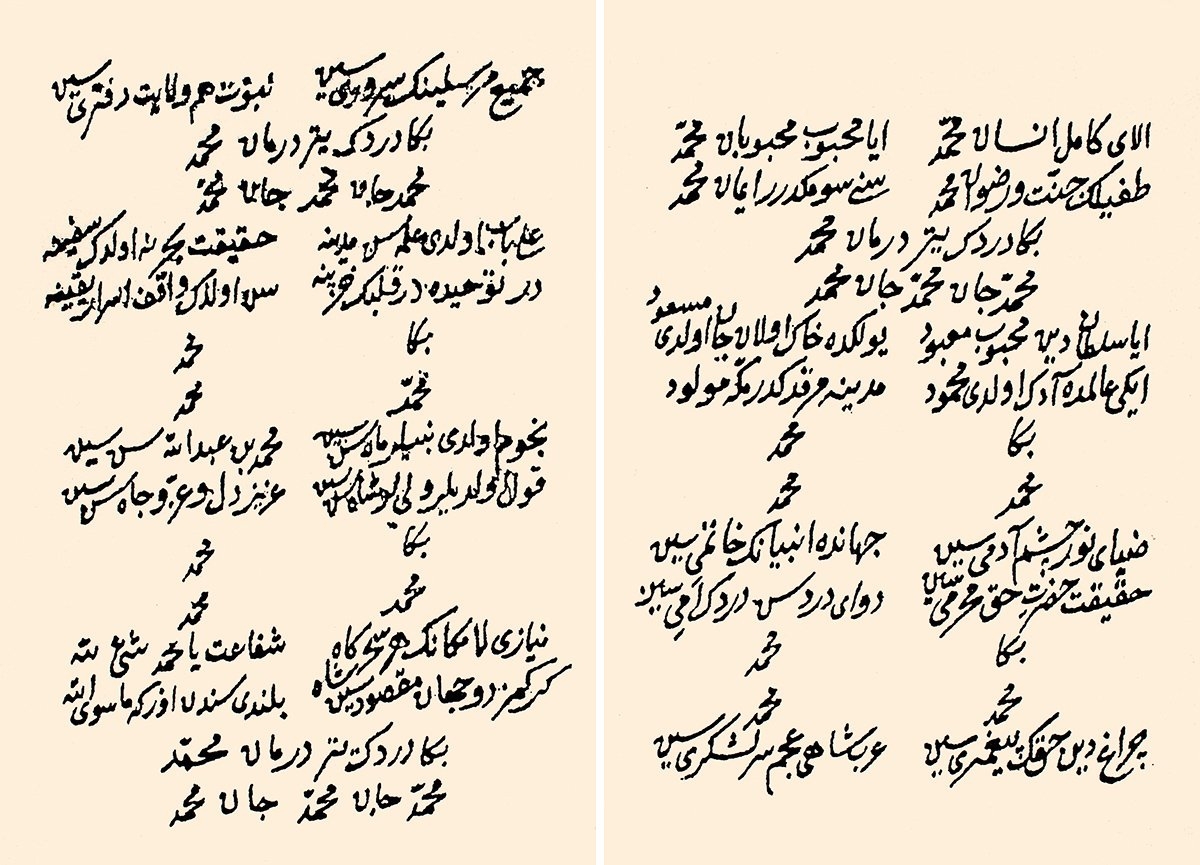 الای کامل انسان محمّد ایا محبوب محبوبان محمّد
طفیلک جنّت و رضوان محمد سنی سومکدر ایمان محمد
بکا دردک یتر درمان محمد
محمّد جان محمّد جان محمد
ایا سلطان دین محبوب معبود یولکده خاک اولان جان اولدی مسعود
ایکی عالمده آدک اولدی محمود مدینه مرقدکدر مکّه مولود
بکا محمد
محمد محمد
ضیای نور چشم آدمی سین جهانده انبیانک خاتمی سین
حقیقت حضرت حق محرمی سین دوای دردسن دردک امی سین
بکا محمد
محمد محمد
چراغ دین حقک پیغمبری سین عرب شاهی عجم سرلشکری سین
جمیع مرسلینک سروری سین نبوّت هم ولایت دفتری سین
بکا دردک یتر درمان محمد
محمد جان محمّد جان محمّد
اولدی علمه سن مدینه حقیقت بحرینه اولدک سفینه
در توحیده در قلبک خزینه سن اولدک واقف اسرار یقینه
بکا محمد
محمّد محمد
نجوم اولدی نبیلر ماه سن سین محمد بن عبدالله سن سین
قول اولدیلر ولی لر شاه سن سین عزیز دل و عزّ و جاه سن سین
بکا محمد
محمد محمد
نیازی لامکانک هر سحرکاه شفاعت یا محمد شیٔ لله
دو جهان مقصودی سین شاه بلندی سندن اوزکه ماسوی الله
بکا دردک یتر درمان محمّد
محمّد جان محمّد جان محمد